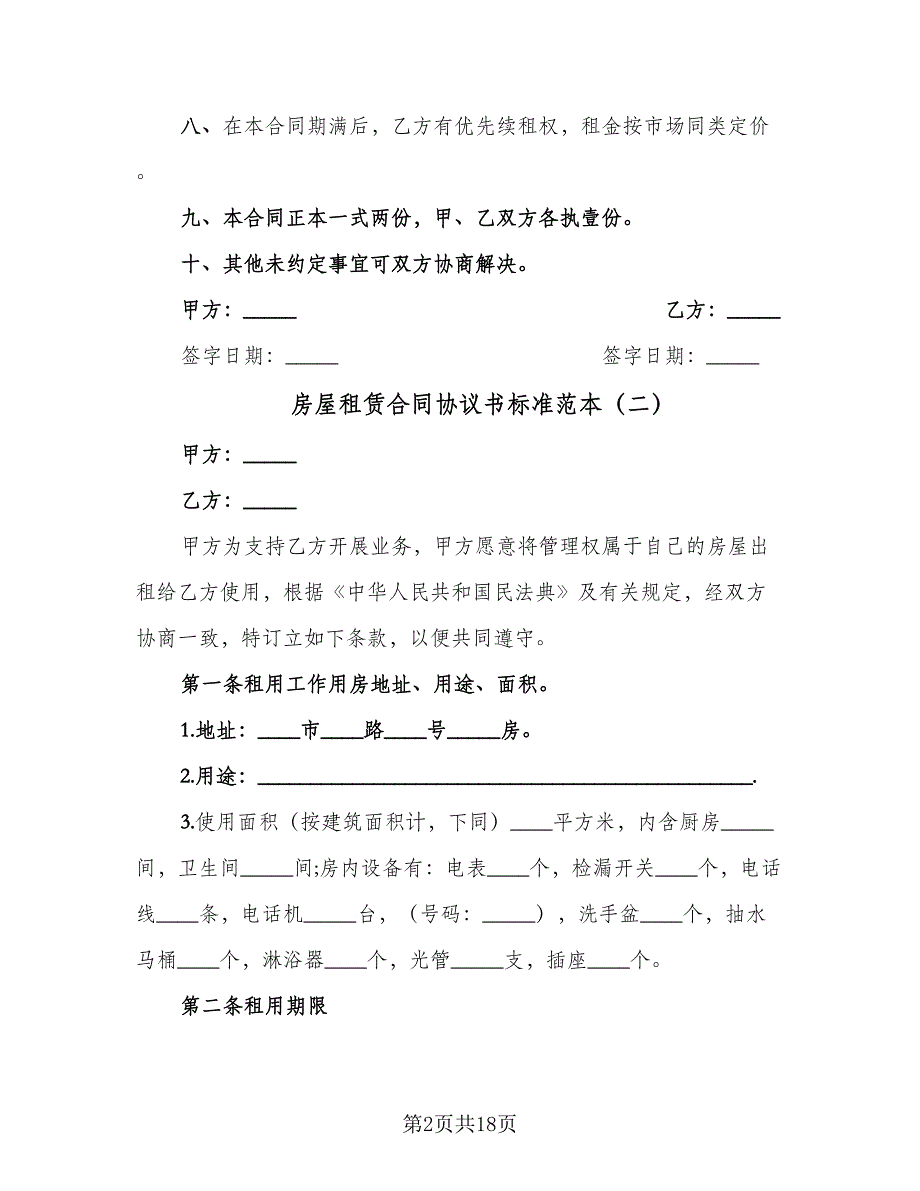 八、在本合同期满后，乙方有优先续租权，租金按市场同类定价
。
九、本合同正本一式两份，甲、乙双方各执壹份。
十、其他未约定事宜可双方协商解决。
甲方：_____ 乙方：_____
签字日期：_____ 签字日期：_____
房屋租赁合同协议书标准范本（二）
甲方：_____
乙方：_____
甲方为支持乙方开展业务，甲方愿意将管理权属于自己的房屋出
租给乙方使用，根据《中华人民共和国民法典》及有关规定，经双方
协商一致，特订立如下条款，以便共同遵守。
第一条租用工作用房地址、用途、面积。
1.地址：____市____路____号_____房。
2.用途：_______________________________________________.
3.使用面积（按建筑面积计，下同）____平方米，内含厨房_____
间，卫生间_____间;房内设备有：电表____个，检漏开关____个，电话
线____条，电话机_____台，（号码：_____），洗手盆____个，抽水
马桶____个，淋浴器____个，光管_____支，插座____个。
第二条租用期限
第2页共18页